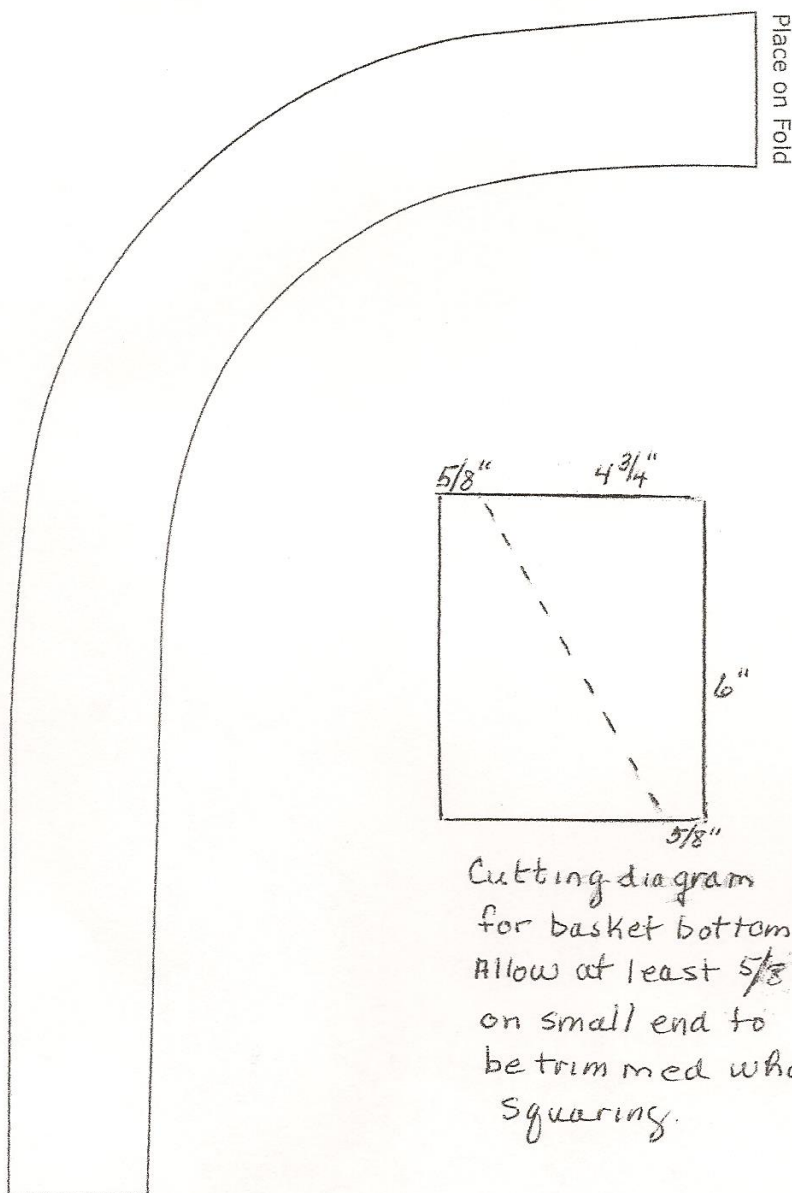 Place on Fold
5/8" 4 3/4"
6"
5/8"
Cutting diagram
for basket bottom
Allow at least 5/8
on small end to
be trimmed
Squaring.